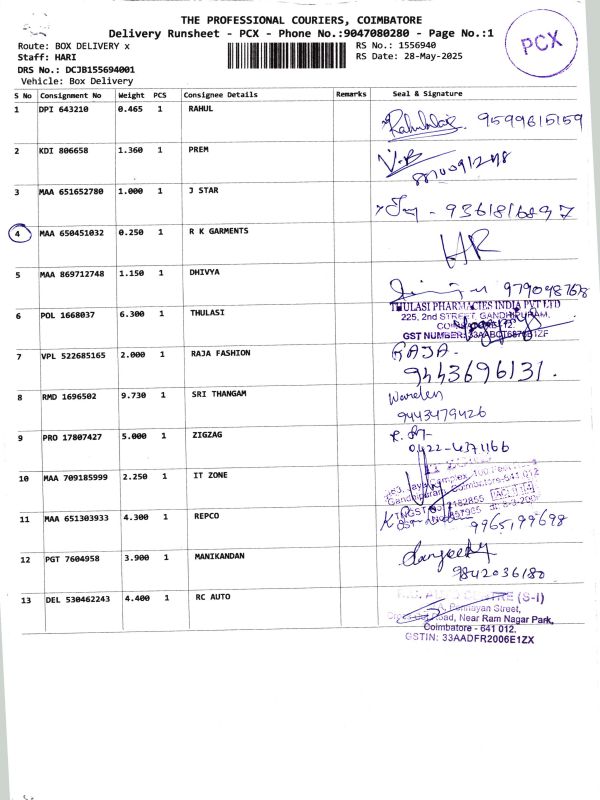 THE PROFESSIONAL COURIERS, COIMBATORE
Delivery Runsheet - PCX - Phone No.:9047080280 - Page No.:1
PCX
Route: BOX DELIVERY x
RS No.: 1556940
Staff: HARI
RS Date: 28-May-2025
DRS No.: DCJB155694001
Vehicle: Box Delivery
S No Consignment No Weight PCS Consignee Details Remarks Seal & Signature
1 DPI 643210 0.465 1 RAHUL 9599615159
2 KDI 806658 1.360 1 PREM
3 MAA 651652780 1.000 1 J STAR - 9361816897
4 MAA 650451032 0.250 1 R K GARMENTS HR
5 MAA 869712748 1.150 1 DHIVYA
6 POL 1668037 6.300 1 THULASI
THULASI PHARMACIES INDIA PVT LTD
225, 2nd STREET, GANDHIPURAM,
GST NUMBER:
7 VPL 522685165 2.000 1 RAJA FASHION RAJA-
9443696131.
8 RMD 1696502 9.730 1 SRI THANGAM Warden
9443479426
9 PRO 17807427 5.000 1 ZIGZAG
0422-4371166
10 MAA 709185999 2.250 1 IT ZONE
Gandhipuram, Coimbatore-641 012
11 MAA 651303933 4.300 1 REPCO
12 PGT 7604958 3.900 1 MANIKANDAN
9842036180
13 DEL 530462243 4.400 1 RC AUTO
(S-I)
Ponnayan Street,
Road, Near Ram Nagar Park,
Coimbatore - 641 012.
GSTIN: 33AADFR2006E1ZX